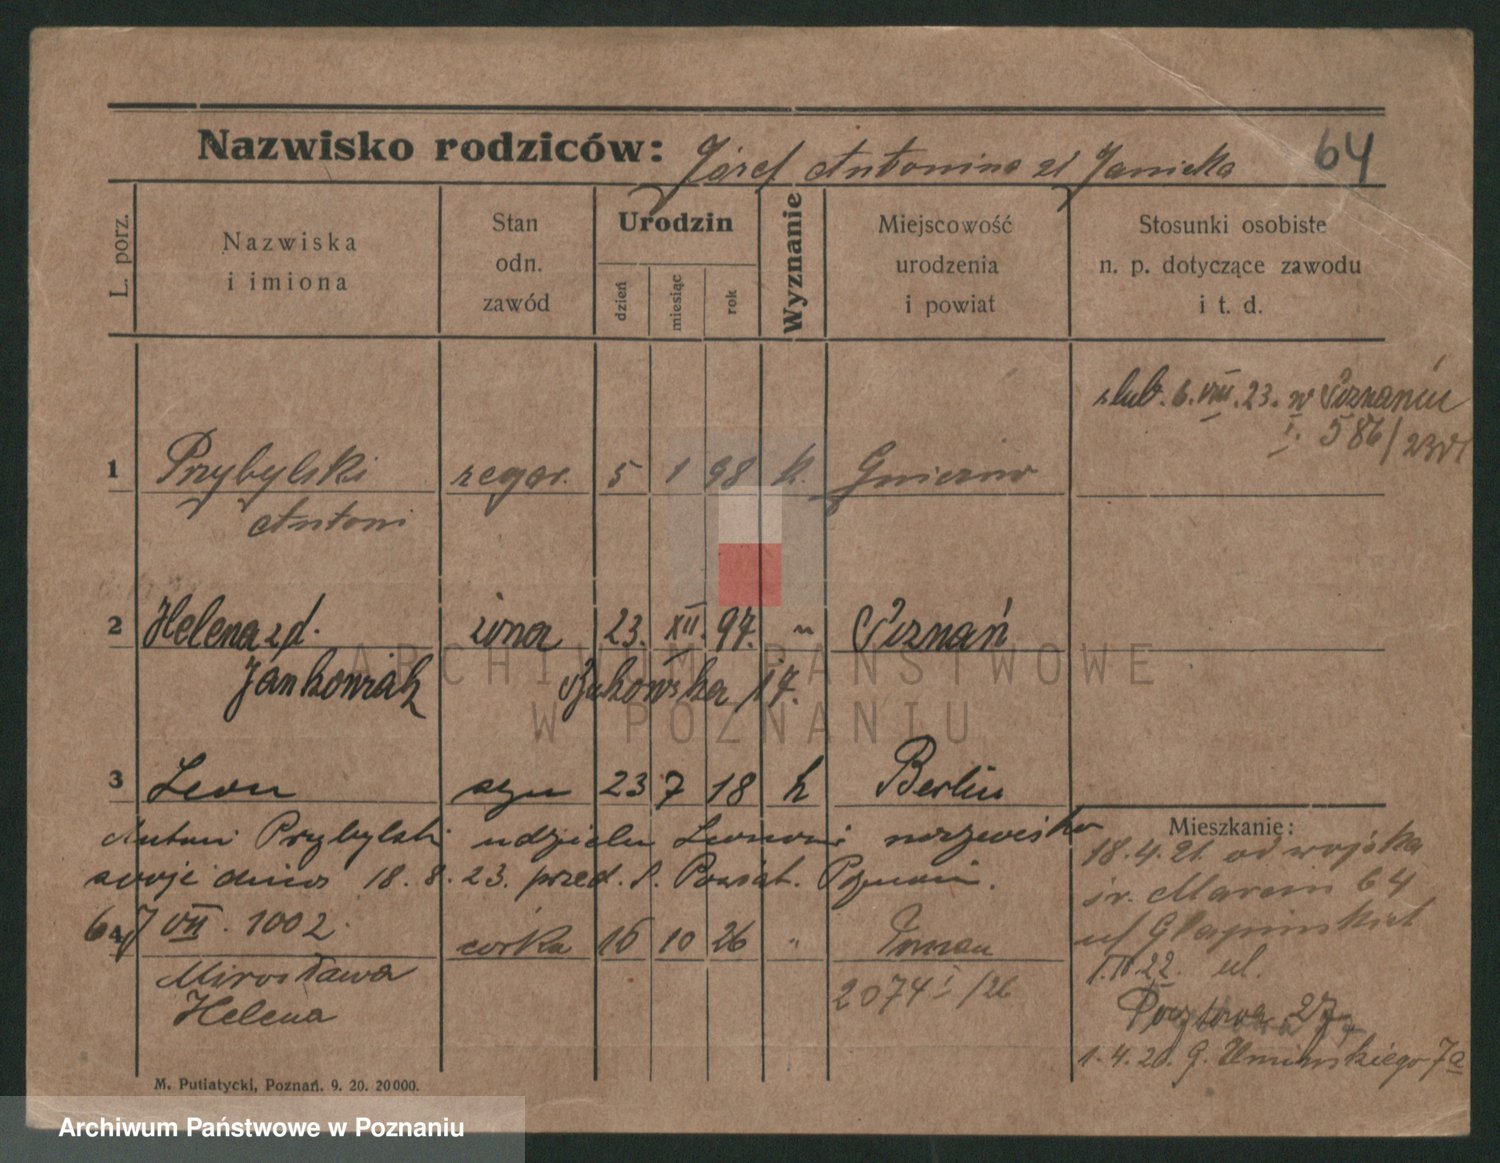 Nazwisko rodziców: Józef Antonina zd Janicka 64
L. porz.
Nazwiska
i imiona
Stan
odn.
zawód
Urodzin
dzień
miesiąc
rok
Wyznanie
Miejscowość
urodzenia
i powiat
Stosunki osobiste
n. p. dotyczące zawodu
i t. d.
ślub. 6. VIII. 23. w Poznaniu
I. 586/23
1 Przybylski zegar. 5 1 98 k. Gniezno
Antoni
2 Helena zd. żona 23. XII. 97. " Poznań
Jankowiak Bukowska 17.
3 Leon syn 23 7 18 k Berlin
Antoni Przybylski udzielił Leonowi nazwisko
swoje dnia 18. 8. 23. przed. Poznań.
VII. 1002.
4 córka 16 10 26 " Poznań
Mirosława
Helena
2074 I/26
Mieszkanie:
18.4.21. od wojska
św. Marcin 64
22. ul.
Pocztowa 27
1.4.26. G. Umińskiego 7a
M. Putiatycki, Poznań. 9. 20. 20000.
ARCHIWUM PAŃSTWOWE
W POZNANIU
Archiwum Państwowe w Poznaniu